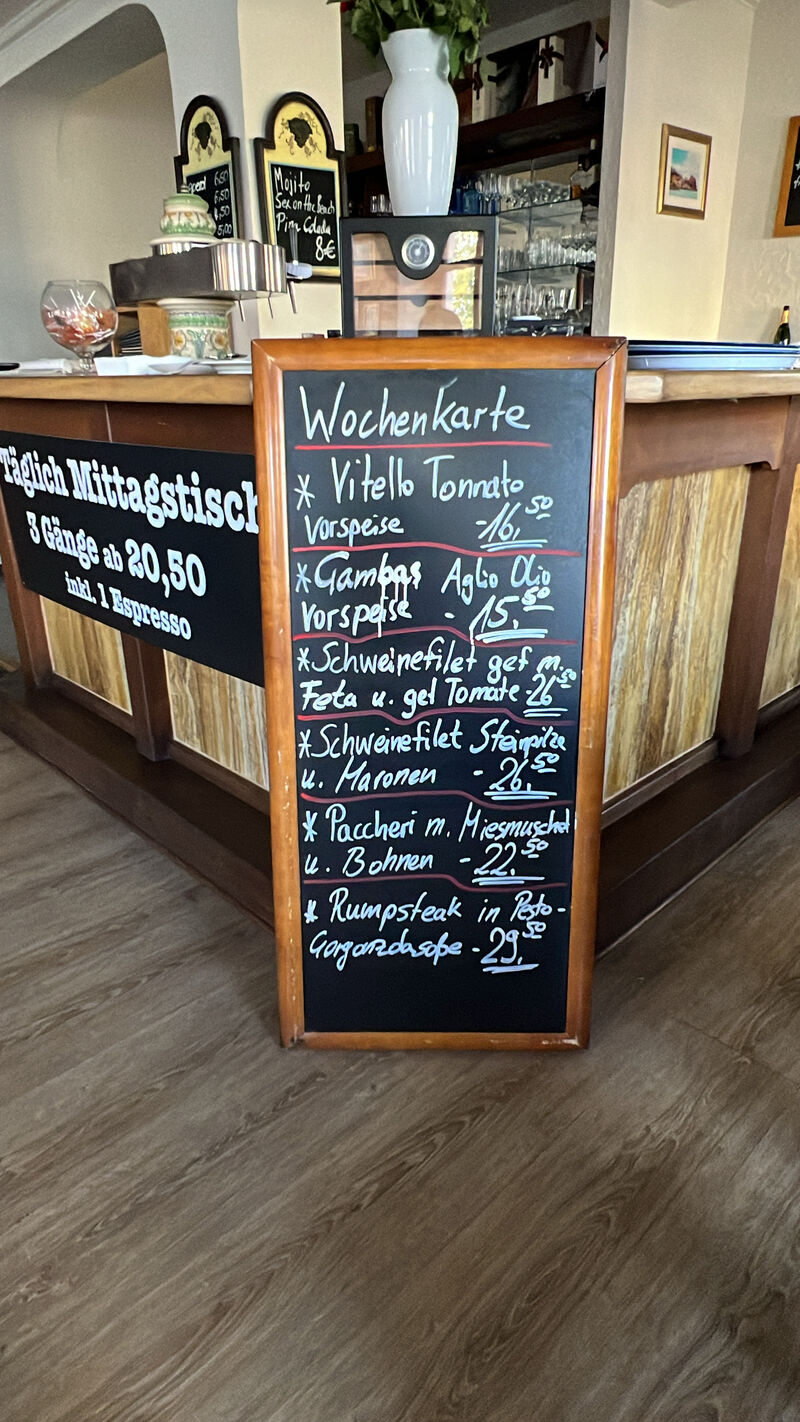 6,50
6,50
4,50
5,00
Mojito
Sex on the Beach
Pina Colada
8€
Täglich Mittagstisch
3 Gänge ab 20,50
inkl. 1 Espresso
Wochenkarte
* Vitello Tonnato
Vorspeise -16,50
* Gambas Aglio Olio
Vorspeise - 15,50
* Schweinefilet gef m.
Feta u. get Tomate -26,50
* Schweinefilet Steinpilze
u. Maronen - 26,50
* Paccheri m. Miesmuschel
u. Bohnen - 22,50
* Rumpsteak in Pesto-
Gorgonzolasoße - 29,50